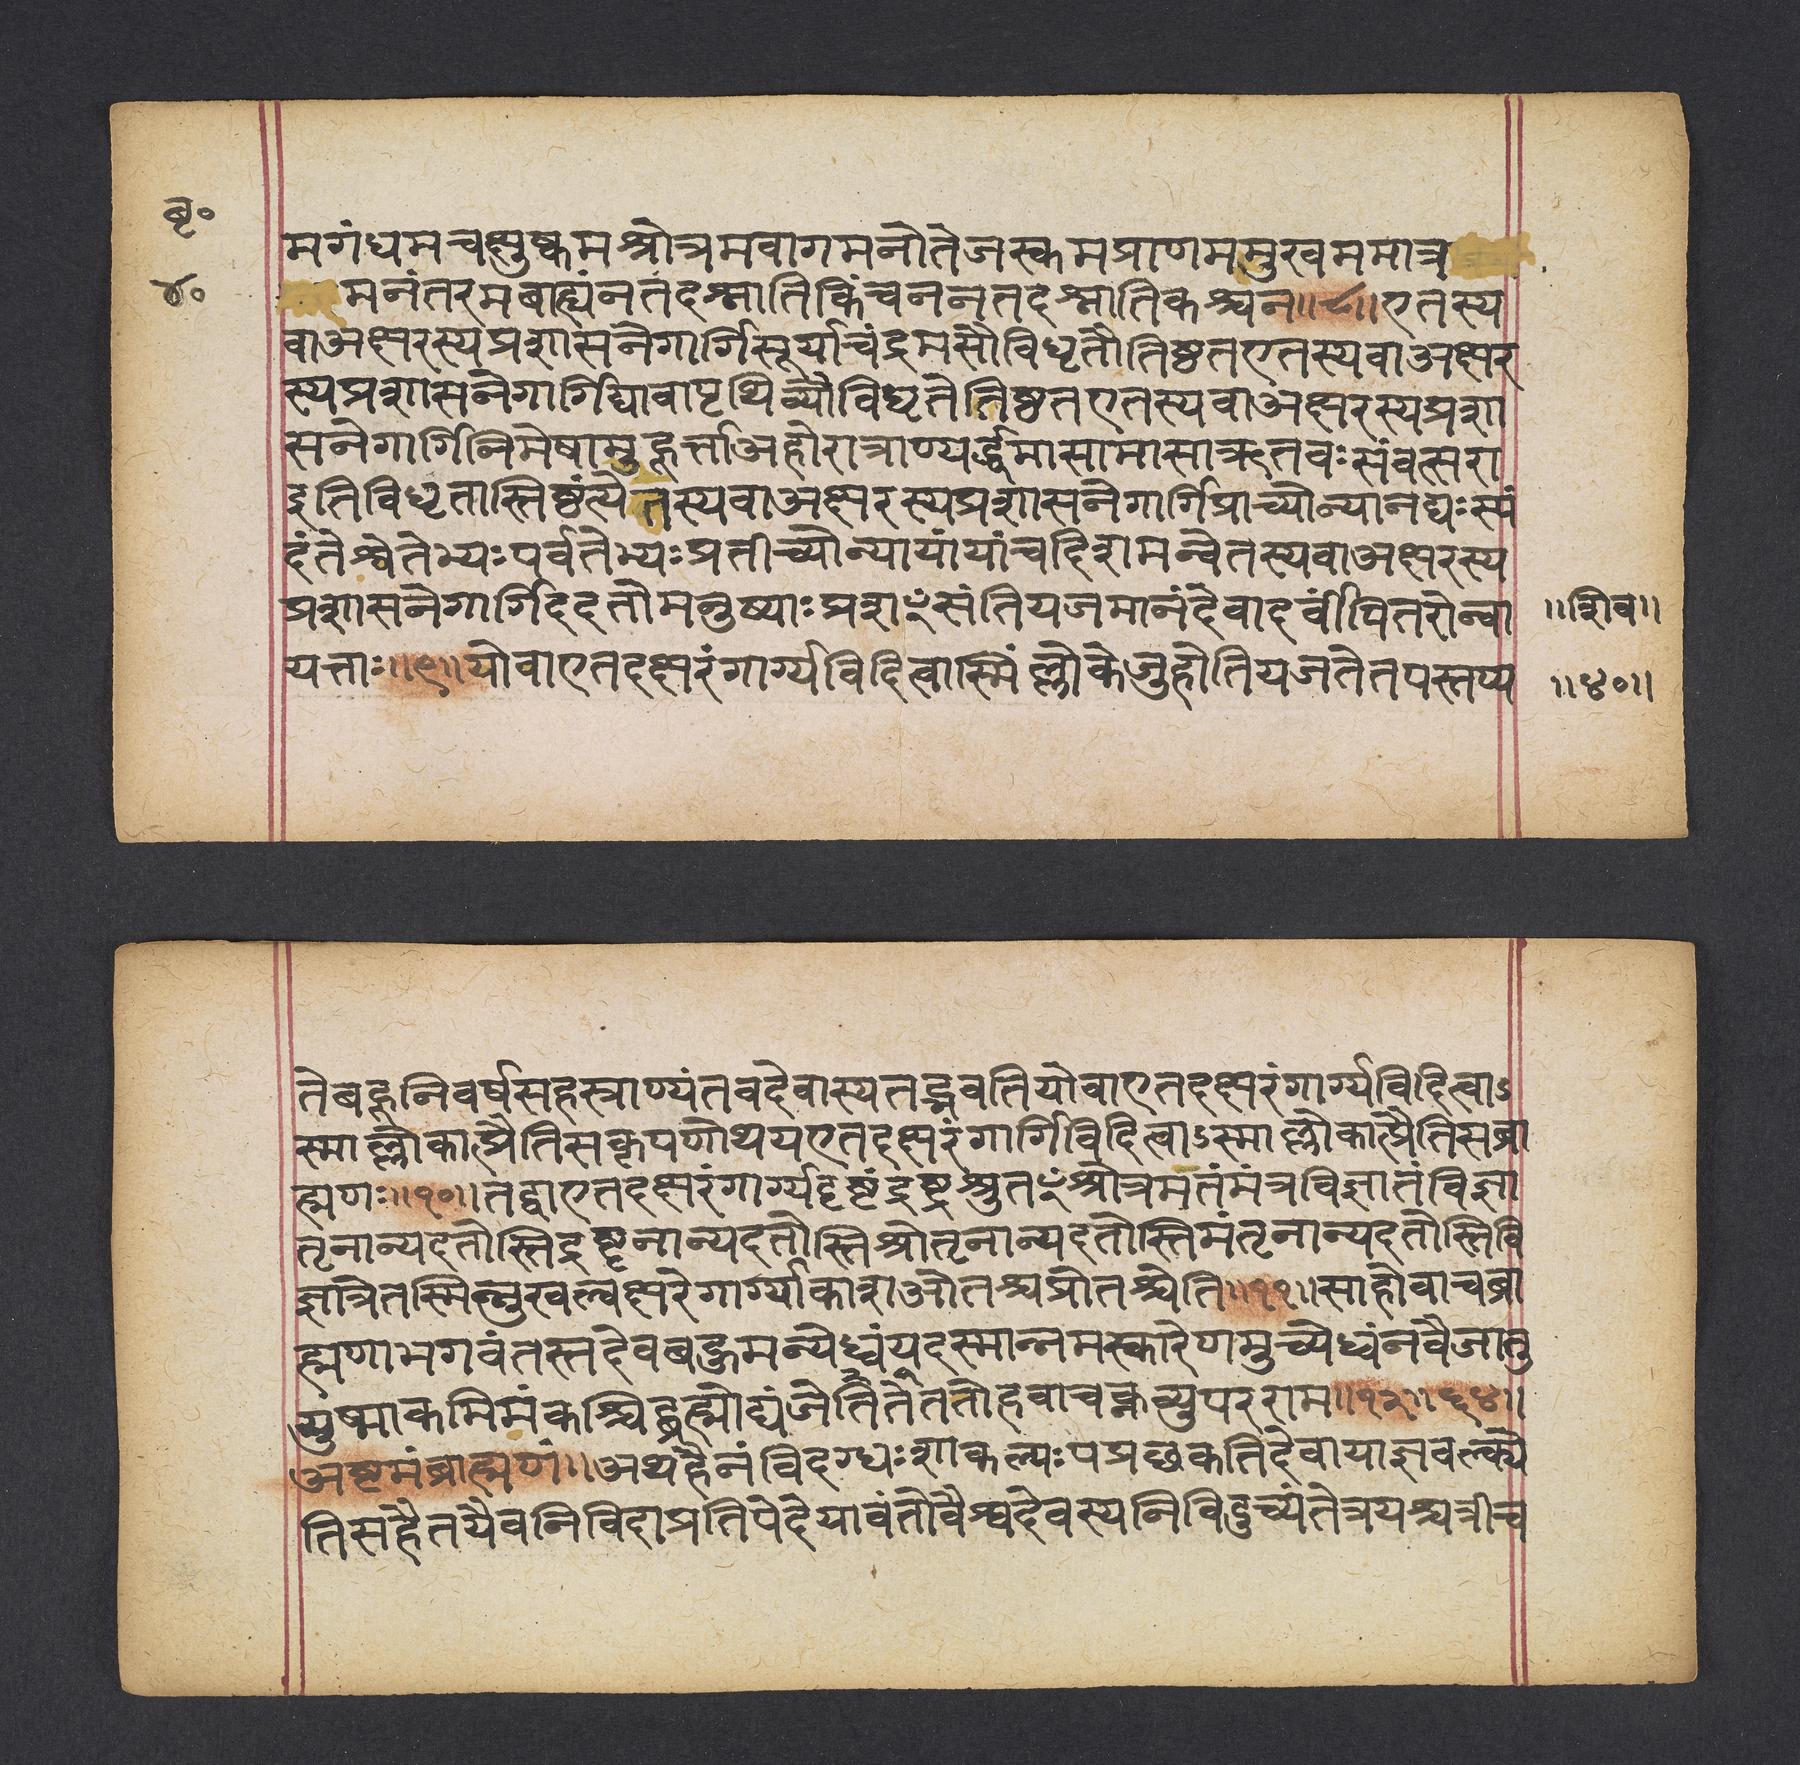 बृ॰
४॰
मगंधमचक्षुष्कमश्रोत्रमवागमनोतेजस्कमप्राणममुखममात्र
मनंतरमबाह्यंनतदश्नातिकिंचननतदश्नातिकश्चन॥८॥एतस्य
वाअक्षरस्यप्रशासनेगार्गिसूर्याचंद्रमसौविधृतौतिष्ठतएतस्यवाअक्षर
स्यप्रशासनेगार्गिद्यावापृथिव्यौविधृतेतिष्ठतएतस्यवाअक्षरस्यप्रशा
सनेगार्गिनिमेषामुहूर्त्ताअहोरात्राण्यर्द्धमासामासाऋतवःसंवत्सरा
इतिविधृतास्तिष्ठंत्येतस्यवाअक्षरस्यप्रशासनेगार्गिप्राच्योन्यानद्यःस्यं
दंतेश्वेतेभ्यःपर्वतेभ्यःप्रतीच्योन्यायांयांचदिशमन्वेतस्यवाअक्षरस्य
प्रशासनेगार्गिददतोमनुष्याःप्रशꣳसंतियजमानंदेवादर्वींपितरोन्वा
यत्ताः॥९॥योवाएतदक्षरंगार्ग्यविदित्वास्मिंल्लोकेजुहोतियजतेतपस्तप्य
॥शिव॥
॥४०॥
तेबहूनिवर्षसहस्त्राण्यंतवदेवास्यतद्भवतियोवाएतदक्षरंगार्ग्यविदित्वाऽ
स्माल्लोकात्प्रैतिसकृपणोथयएतदक्षरंगार्गिविदित्वाऽस्माल्लोकात्प्रैतिसब्रा
ह्मणः॥१०॥तद्वाएतदक्षरंगार्ग्यदृष्टंद्रष्ट्रश्रुतꣳश्रोत्रमतंमंत्रविज्ञातंविज्ञा
तृनान्यदतोस्तिद्रष्टृनान्यदतोस्तिश्रोतृनान्यदतोस्तिमंतृनान्यदतोस्तिवि
ज्ञात्रेतस्मिन्नुखल्वक्षरेगार्ग्याकाशओतश्चप्रोतश्चेति॥११॥साहोवाचब्रा
ह्मणाभगवंतस्तदेवबहुमन्येध्वंयदस्मान्नमस्कारेणमुच्येध्वंनवैजातु
युष्माकमिमंकश्चिद्ब्रह्मोद्यंजेतितेततोहवाचक्नव्युपरराम॥१२॥६४॥
अष्टमंब्राह्मणं॥अथहैनंविदग्धःशाकल्यःपप्रछकतिदेवायाज्ञवल्क्ये
तिसहैतयैवनिविदाप्रतिपेदेयावंतोवैश्वदेवस्यनिविद्युच्यंतेत्रयश्चत्रीच